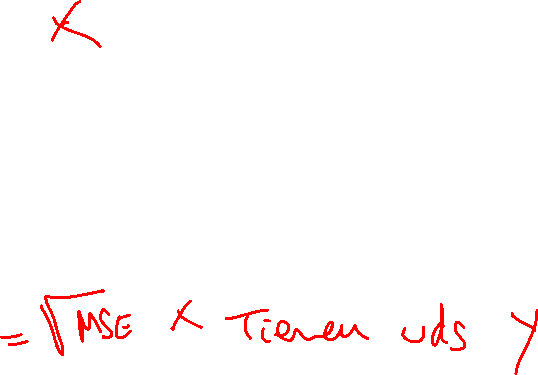 x
= √MSE x Tienen uds y